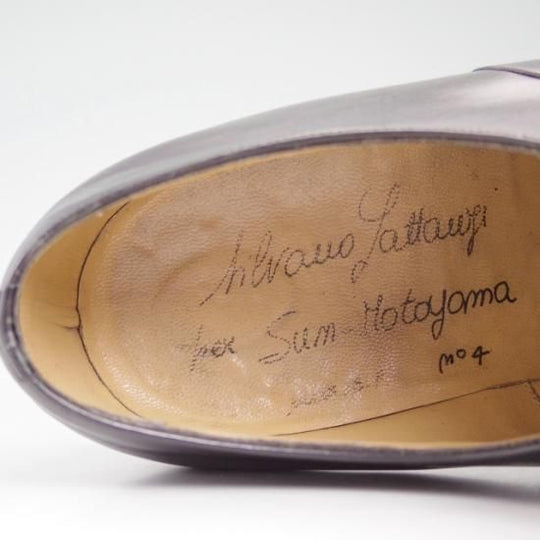 Silvano Lattanzi
per Sun Motoyama
n° 4